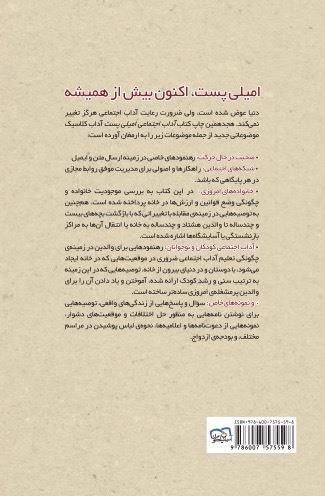 امیلی پست، اکنون بیش از همیشه
دنیا عوض شده است، ولی ضرورت رعایت آداب اجتماعی هرگز تغییر
نمی‌کند. هجدهمین چاپ کتاب آداب اجتماعی امیلی پست آداب کلاسیک
موضوعاتی جدید از جمله موضوعات زیر را به ارمغان آورده است:
• صحبت در حال حرکت: رهنمودهای خاصی در زمینه ارسال متن و ایمیل
• شبکه‌های اجتماعی: راهکارها و اصولی برای مدیریت موفق روابط مجازی
در هر پایگاهی که باشد.
• خانواده‌های امروزی: در این کتاب به بررسی موجودیت خانواده و
چگونگی وضع قوانین و ارزش‌ها در خانه پرداخته شده است. همچنین
به توصیه‌هایی در زمینه‌ی مقابله با تغییراتی که با بازگشت بچه‌های بیست
و چندساله تا والدین هشتاد و چندساله به خانه یا انتقال آن‌ها به مراکز
بازنشستگی یا آسایشگاه‌ها اشاره شده است.
• آداب اجتماعی کودکان و نوجوانان: رهنمودهایی برای والدین در زمینه‌ی
چگونگی تعلیم آداب اجتماعی ضروری در موقعیت‌هایی که در خانه ایجاد
می‌شود، با دوستان و در دنیای بیرون از خانه. توصیه‌هایی که در این زمینه
به ترتیب سنی و رشد کودک ارائه شده، آموختن و یاد دادن آن را برای
والدین پرمشغله‌ی امروزی ساده‌تر ساخته است.
• و نمونه‌های خاص: سؤال و پاسخ‌هایی از زندگی‌های واقعی، توصیه‌هایی
برای نوشتن نامه‌هایی به منظور حل اختلافات و موقعیت‌های دشوار،
نمونه‌هایی از دعوت‌نامه‌ها و اعلامیه‌ها، نحوه‌ی لباس پوشیدن در مراسم
مختلف، و بودجه‌ی ازدواج.
ISBN: 978-600-7575-59-8
9 786007 575598